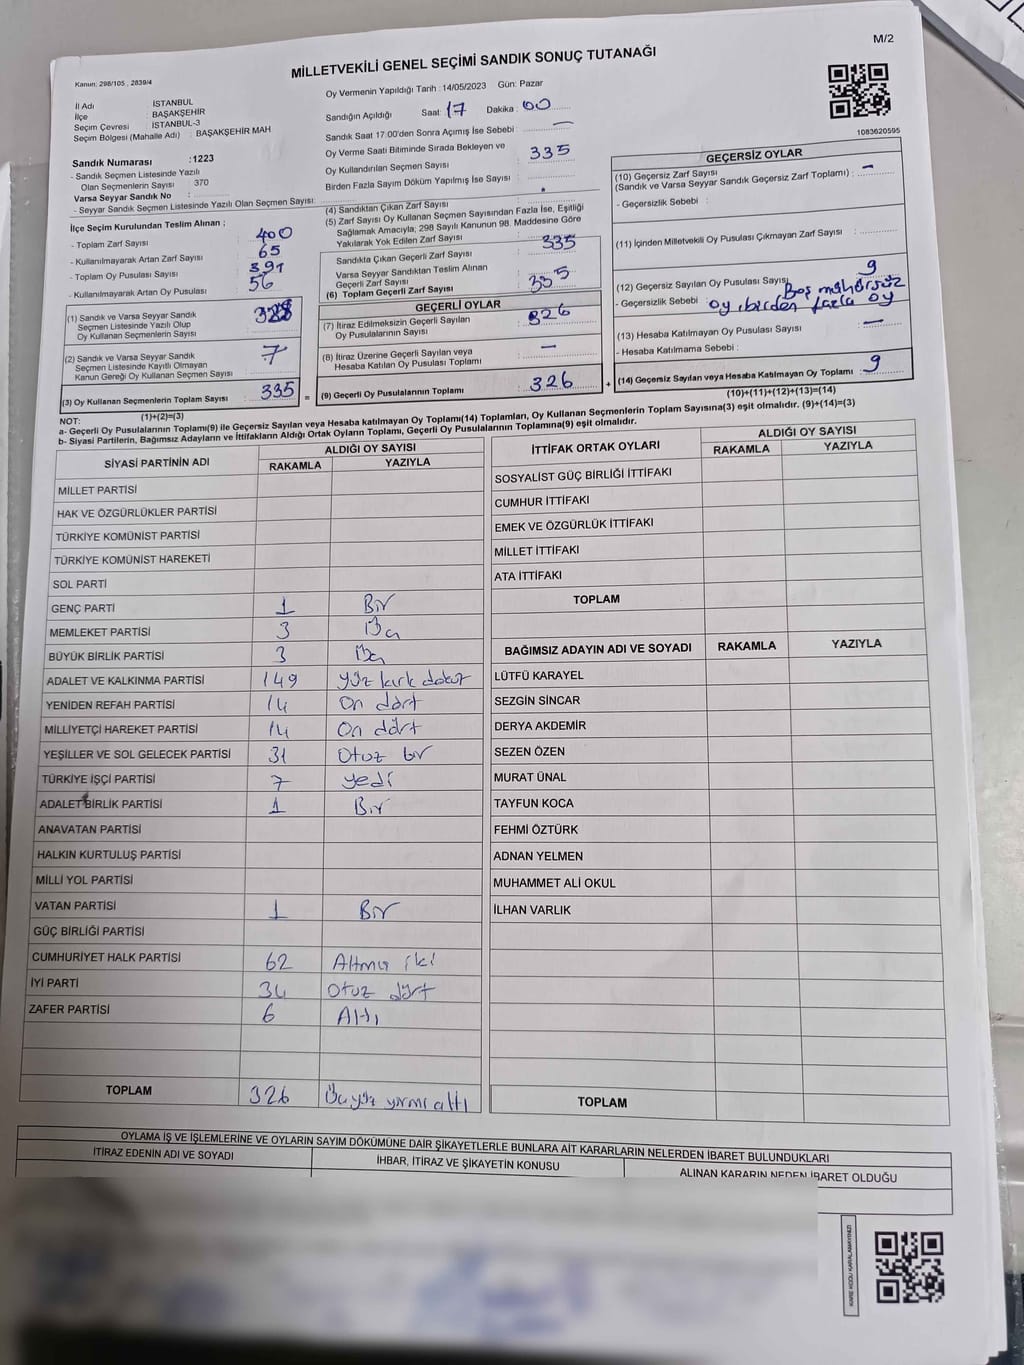 M/2
MİLLETVEKİLİ GENEL SEÇİMİ SANDIK SONUÇ TUTANAĞI
Kanun: 298/105 , 2839/4
İl Adı : İSTANBUL
İlçe : BAŞAKŞEHİR
Seçim Çevresi : İSTANBUL-3
Seçim Bölgesi (Mahalle Adı) : BAŞAKŞEHİR MAH
Sandık Numarası :1223
- Sandık Seçmen Listesinde Yazılı
Olan Seçmenlerin Sayısı 370
Varsa Seyyar Sandık No :
- Seyyar Sandık Seçmen Listesinde Yazılı Olan Seçmen Sayısı:
İlçe Seçim Kurulundan Teslim Alınan ;
- Toplam Zarf Sayısı 400
- Kullanılmayarak Artan Zarf Sayısı 65
- Toplam Oy Pusulası Sayısı 391
- Kullanılmayarak Artan Oy Pusulası 56
(1) Sandık ve Varsa Seyyar Sandık
Seçmen Listesinde Yazılı Olup
Oy Kullanan Seçmenlerin Sayısı
(2) Sandık ve Varsa Seyyar Sandık
Seçmen Listesinde Kayıtlı Olmayan
Kanun Gereği Oy Kullanan Seçmen Sayısı 7
(3) Oy Kullanan Seçmenlerin Toplam Sayısı 335 =
(1)+(2)=(3)
Oy Vermenin Yapıldığı Tarih : 14/05/2023 Gün: Pazar
Sandığın Açıldığı Saat: 17 Dakika : 00
Sandık Saat 17:00'den Sonra Açımış İse Sebebi : —
Oy Verme Saati Bitiminde Sırada Bekleyen ve
Oy Kullandırılan Seçmen Sayısı 335
Birden Fazla Sayım Döküm Yapılmış İse Sayısı :
(4) Sandıktan Çıkan Zarf Sayısı
(5) Zarf Sayısı Oy Kullanan Seçmen Sayısından Fazla İse, Eşitliği
Sağlamak Amacıyla; 298 Sayılı Kanunun 98. Maddesine Göre
Yakılarak Yok Edilen Zarf Sayısı
Sandıkta Çıkan Geçerli Zarf Sayısı 335
Varsa Seyyar Sandıktan Teslim Alınan
Geçerli Zarf Sayısı
(6) Toplam Geçerli Zarf Sayısı 335
GEÇERLİ OYLAR
(7) İtiraz Edilmeksizin Geçerli Sayılan
Oy Pusulalarının Sayısı 326
(8) İtiraz Üzerine Geçerli Sayılan veya
Hesaba Katılan Oy Pusulası Toplamı —
(9) Geçerli Oy Pusulalarının Toplamı 326 +
1083620595
GEÇERSİZ OYLAR
(10) Geçersiz Zarf Sayısı
(Sandık ve Varsa Seyyar Sandık Geçersiz Zarf Toplamı) : —
- Geçersizlik Sebebi :
(11) İçinden Milletvekili Oy Pusulası Çıkmayan Zarf Sayısı :
(12) Geçersiz Sayılan Oy Pusulası Sayısı 9
- Geçersizlik Sebebi Boş mühürsüz
oy birden fazla oy
(13) Hesaba Katılmayan Oy Pusulası Sayısı : —
- Hesaba Katılmama Sebebi :
(14) Geçersiz Sayılan veya Hesaba Katılmayan Oy Toplamı 9
(10)+(11)+(12)+(13)=(14)
NOT:
a- Geçerli Oy Pusulalarının Toplamı(9) ile Geçersiz Sayılan veya Hesaba katılmayan Oy Toplamı(14) Toplamları, Oy Kullanan Seçmenlerin Toplam Sayısına(3) eşit olmalıdır. (9)+(14)=(3)
b- Siyasi Partilerin, Bağımsız Adayların ve İttifakların Aldığı Ortak Oyların Toplamı, Geçerli Oy Pusulalarının Toplamına(9) eşit olmalıdır.
SİYASİ PARTİNİN ADI ALDIĞI OY SAYISI
RAKAMLA YAZIYLA
MİLLET PARTİSİ
HAK VE ÖZGÜRLÜKLER PARTİSİ
TÜRKİYE KOMÜNİST PARTİSİ
TÜRKİYE KOMÜNİST HAREKETİ
SOL PARTİ
GENÇ PARTİ 1 Bir
MEMLEKET PARTİSİ 3 üç
BÜYÜK BİRLİK PARTİSİ 3 üç
ADALET VE KALKINMA PARTİSİ 149 yüz kırk dokuz
YENİDEN REFAH PARTİSİ 14 On dört
MİLLİYETÇİ HAREKET PARTİSİ 14 On dört
YEŞİLLER VE SOL GELECEK PARTİSİ 31 Otuz bir
TÜRKİYE İŞÇİ PARTİSİ 7 yedi
ADALET BİRLİK PARTİSİ 1 Bir
ANAVATAN PARTİSİ
HALKIN KURTULUŞ PARTİSİ
MİLLİ YOL PARTİSİ
VATAN PARTİSİ 1 Bir
GÜÇ BİRLİĞİ PARTİSİ
CUMHURİYET HALK PARTİSİ 62 Altmış iki
İYİ PARTİ 34 Otuz dört
ZAFER PARTİSİ 6 Altı
TOPLAM 326 Üçyüz yirmi altı
İTTİFAK ORTAK OYLARI ALDIĞI OY SAYISI
RAKAMLA YAZIYLA
SOSYALİST GÜÇ BİRLİĞİ İTTİFAKI
CUMHUR İTTİFAKI
EMEK VE ÖZGÜRLÜK İTTİFAKI
MİLLET İTTİFAKI
ATA İTTİFAKI
TOPLAM
BAĞIMSIZ ADAYIN ADI VE SOYADI RAKAMLA YAZIYLA
LÜTFÜ KARAYEL
SEZGİN SİNCAR
DERYA AKDEMİR
SEZEN ÖZEN
MURAT ÜNAL
TAYFUN KOCA
FEHMİ ÖZTÜRK
ADNAN YELMEN
MUHAMMET ALİ OKUL
İLHAN VARLIK
TOPLAM
OYLAMA İŞ VE İŞLEMLERİNE VE OYLARIN SAYIM DÖKÜMÜNE DAİR ŞİKAYETLERLE BUNLARA AİT KARARLARIN NELERDEN İBARET BULUNDUKLARI
İTİRAZ EDENİN ADI VE SOYADI İHBAR, İTİRAZ VE ŞİKAYETİN KONUSU ALINAN KARARIN NEDEN İBARET OLDUĞU
KARE KODU KARALAMAYINIZ!